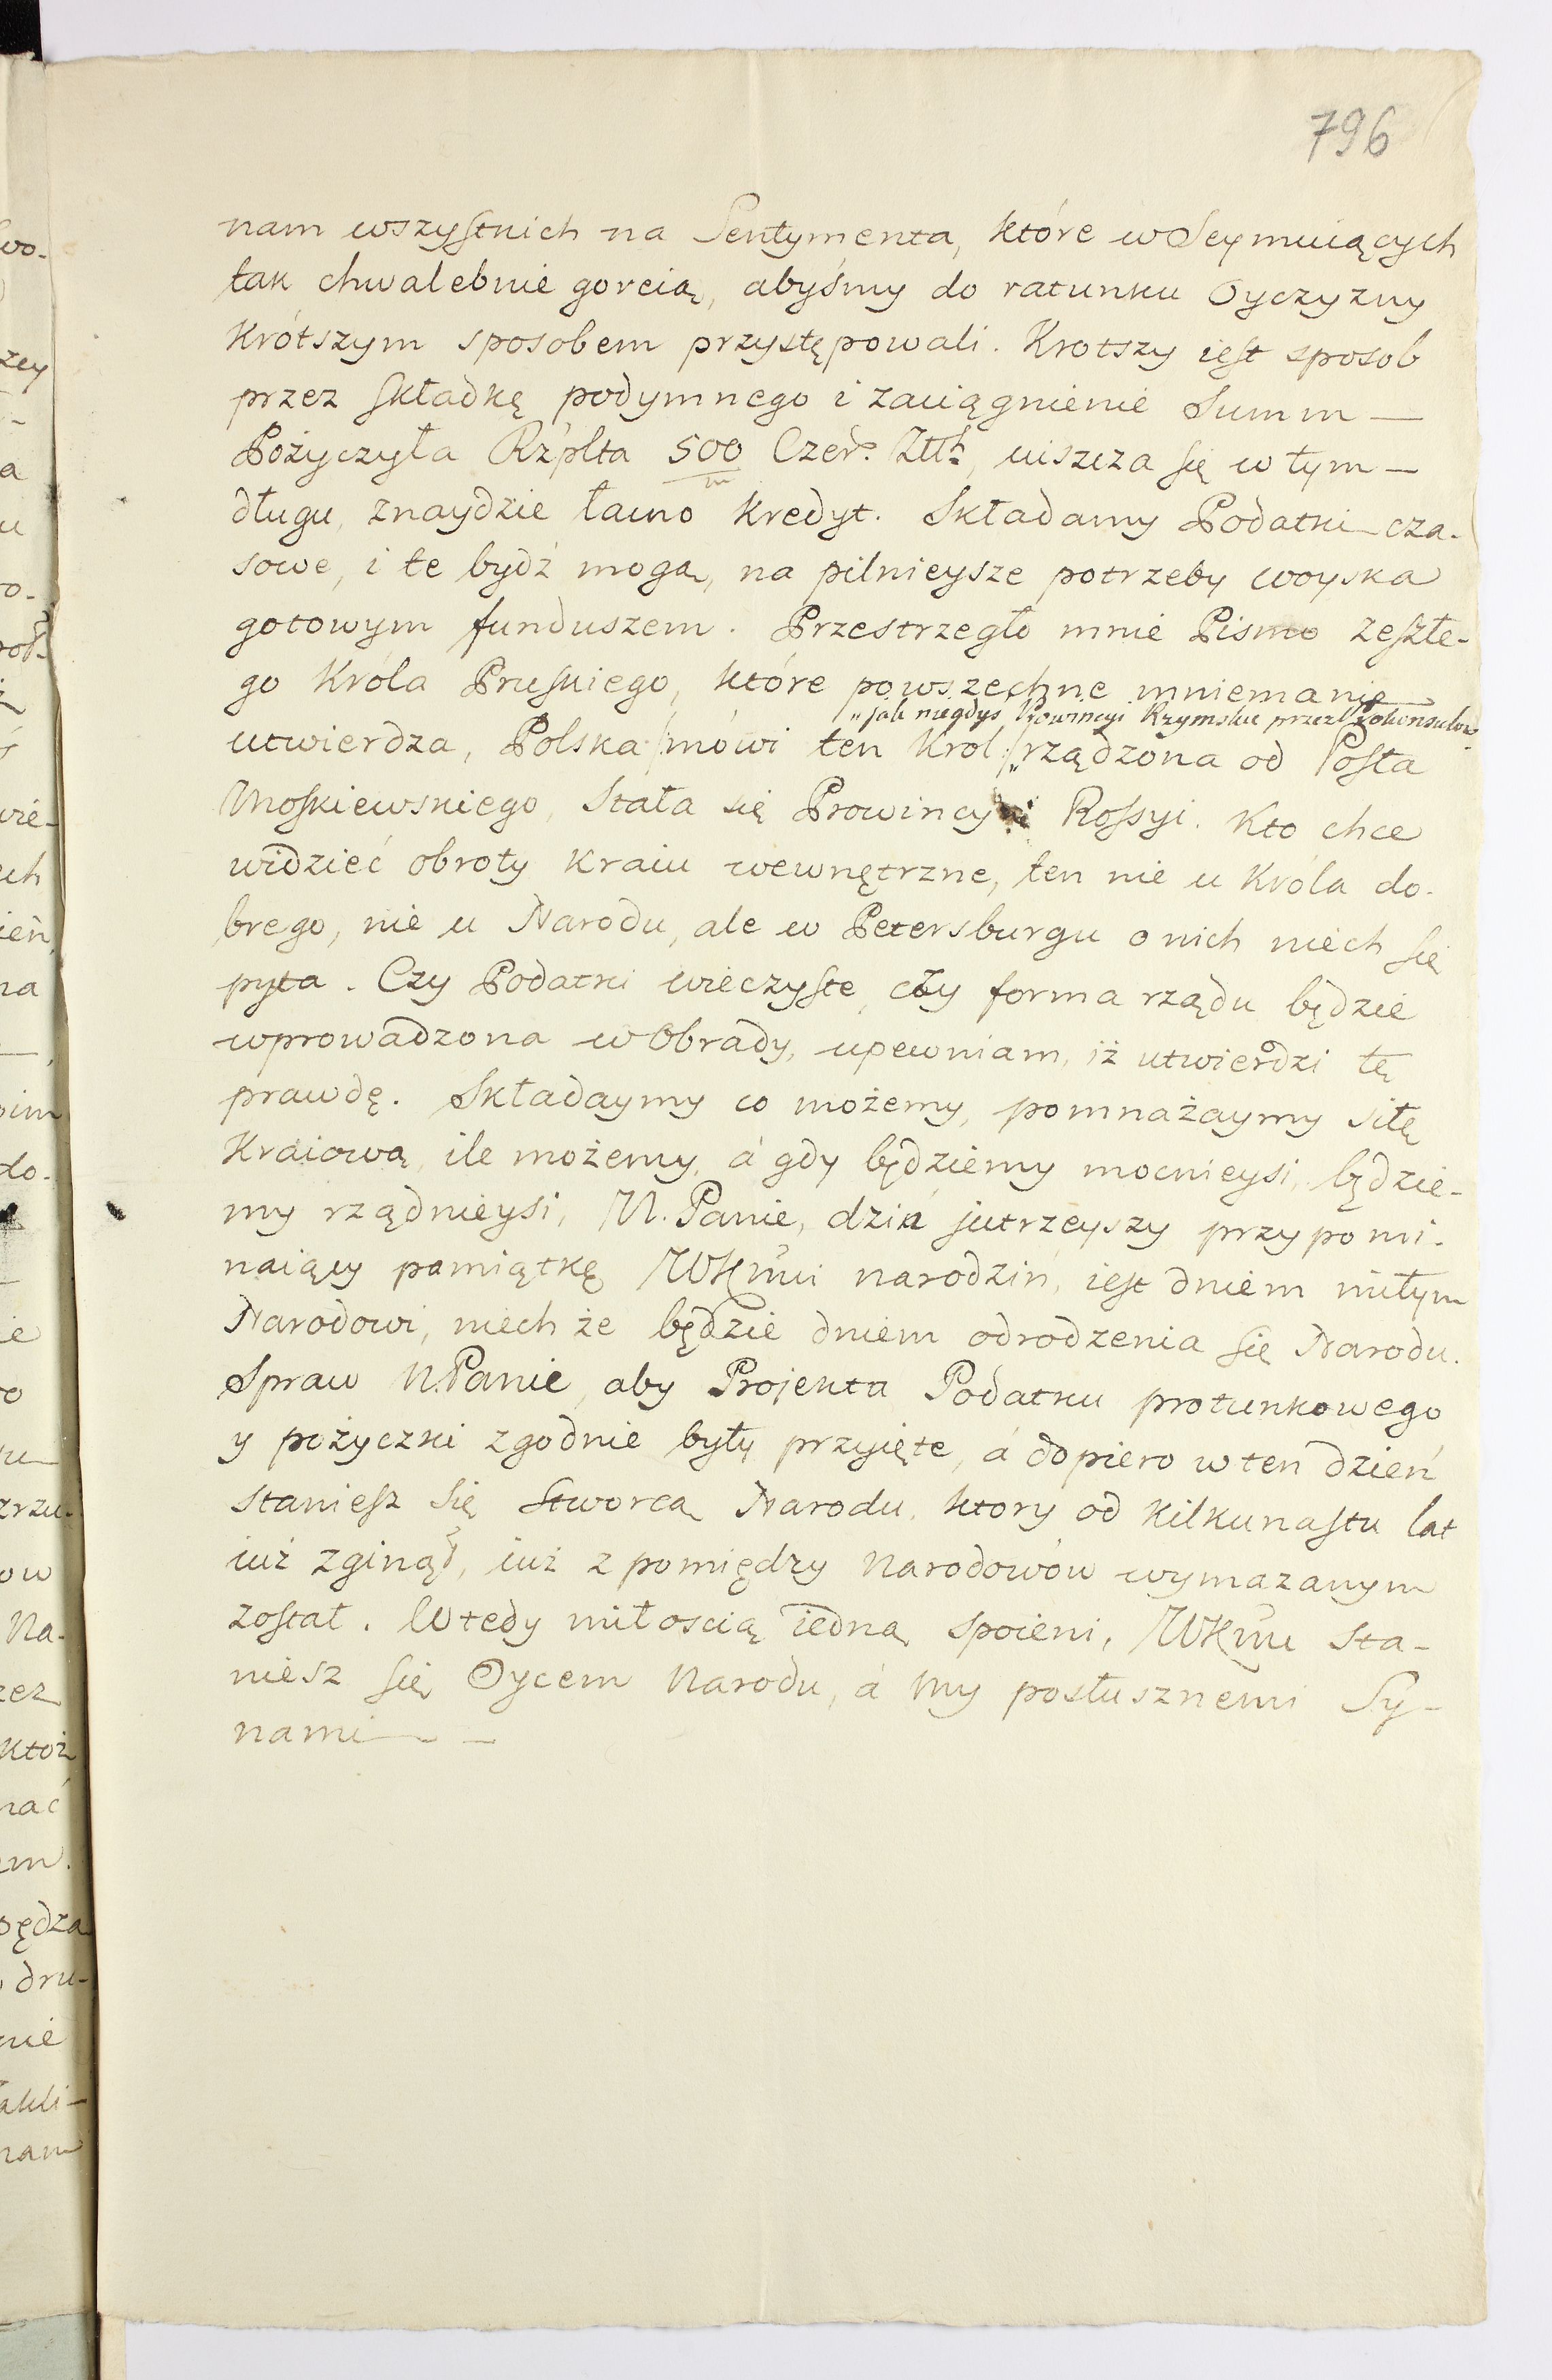 796
nam wszystkich na Sentymenta, które w Seymuiących
tak chwalebnie goreią, abyśmy do ratunku Oyczyzny
Krótszym sposobem przystępowali. Krotszy iest sposob
przez składkę podymnego i zaciągnienie Summ —
Pożyczyła Rzplta 500/m Czer. Złł., uiszcza się w tym —
długu, znaydzie łacno kredyt. Składamy Podatki cza-
sowe, i te bydź mogą, na pilnieysze potrzeby woyska
gotowym funduszem. Przestrzegło mnie Pismo zeszłe-
go Króla Pruskiego, które powszechne mniemanie
"jak niegdyś Prowincyi Rzymskie przez Prokonsulow
utwierdza, Polska /mówi ten Krol/ rządzona od Posła
Moskiewskiego, Stała się Prowincyi Rossyi. Kto chce
widzieć obroty kraiu wewnętrzne, ten nie u Króla do-
brego, nie u Narodu, ale w Petersburgu o nich niech się
pyta. Czy Podatki wieczyste, czy forma rządu będzie
wprowadzona w Obrady, upewniam, iż utwierdzi tę
prawdę. Składaymy co możemy, pomnażaymy siłę
Kraiową, ile możemy, á gdy będziemy mocnieysi, będzie-
my rządnieysi, M. Panie, dziń jutrzeyszy przypomi-
naiący pamiątkę WKMci narodzin, iest dniem miłym
Narodowi, niech że będzie dniem odrodzenia się Narodu.
Spraw N. Panie, aby Projekta Podatku protunkowego
y pożyczki zgodnie były przyięte, á dopiero w ten dzień
staniesz się Stworcą Narodu, ktory od kilkunastu lat
iuż zginął, iuż z pomiędzy Narodowów wymazanym
został. Wtedy miłoscią iedną spoieni, WKMć sta-
niesz się Oycem Narodu, á My posłusznemi Sy-
nami —